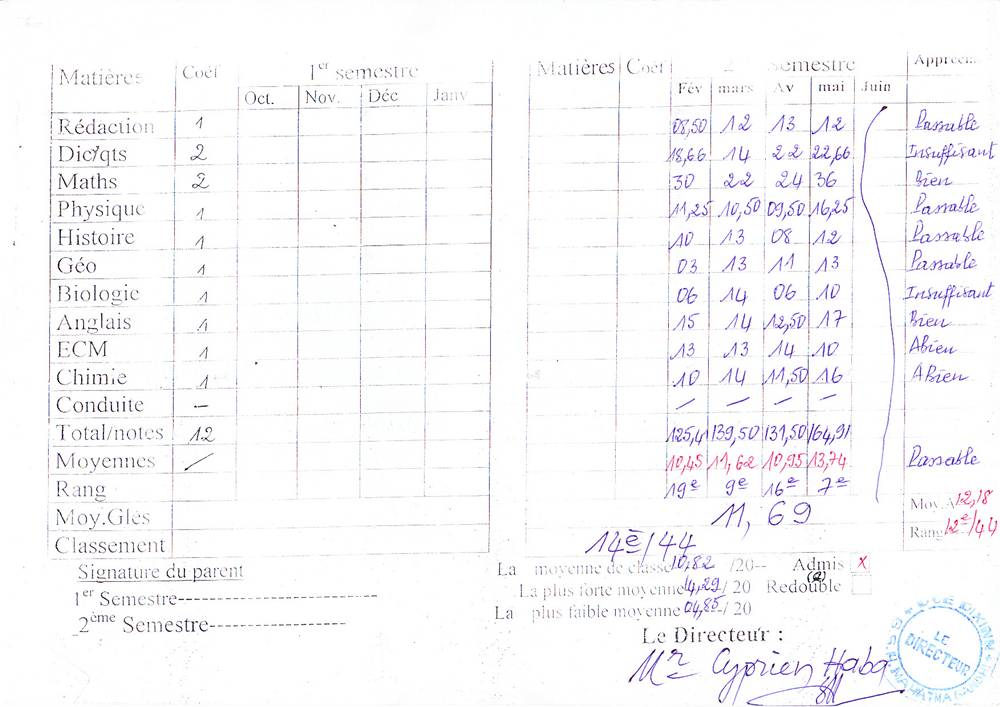 Matières Coef 1er semestre
Oct. Nov. Déc Janv
Rédaction 1
Dic/qts 2
Maths 2
Physique 1
Histoire 1
Géo 1
Biologie 1
Anglais 1
ECM 1
Chimie 1
Conduite –
Total/notes 12
Moyennes /
Rang
Moy.Gles
Classement
Signature du parent
1er Semestre-------------------------
2ème Semestre-----------------
Matières Coef 2 Semestre
Fév mars Av mai Juin
08,50 12 13 12 Passable
18,66 14 22 22,66 Insuffisant
30 22 24 36 Bien
11,25 10,50 09,50 16,25 Passable
10 13 08 12 Passable
03 13 11 13 Passable
06 14 06 10 Insuffisant
15 14 12,50 17 Bien
13 13 14 10 ABien
10 14 11,50 16 ABien
/ – – /
125,41 139,50 131,50 164,91
10,45 11,62 10,95 13,74 Passable
19e 9e 16e 7e
11,69 Moy.A 12,18
14è/44 Rang 12e/44
La moyenne de classe 10,82 /20-- Admis x
La plus forte moyenne 14,29 / 20 Redouble (e)
La plus faible moyenne 04,85 / 20
Le Directeur :
Mr Cyprien Haba
LE DIRECTEUR